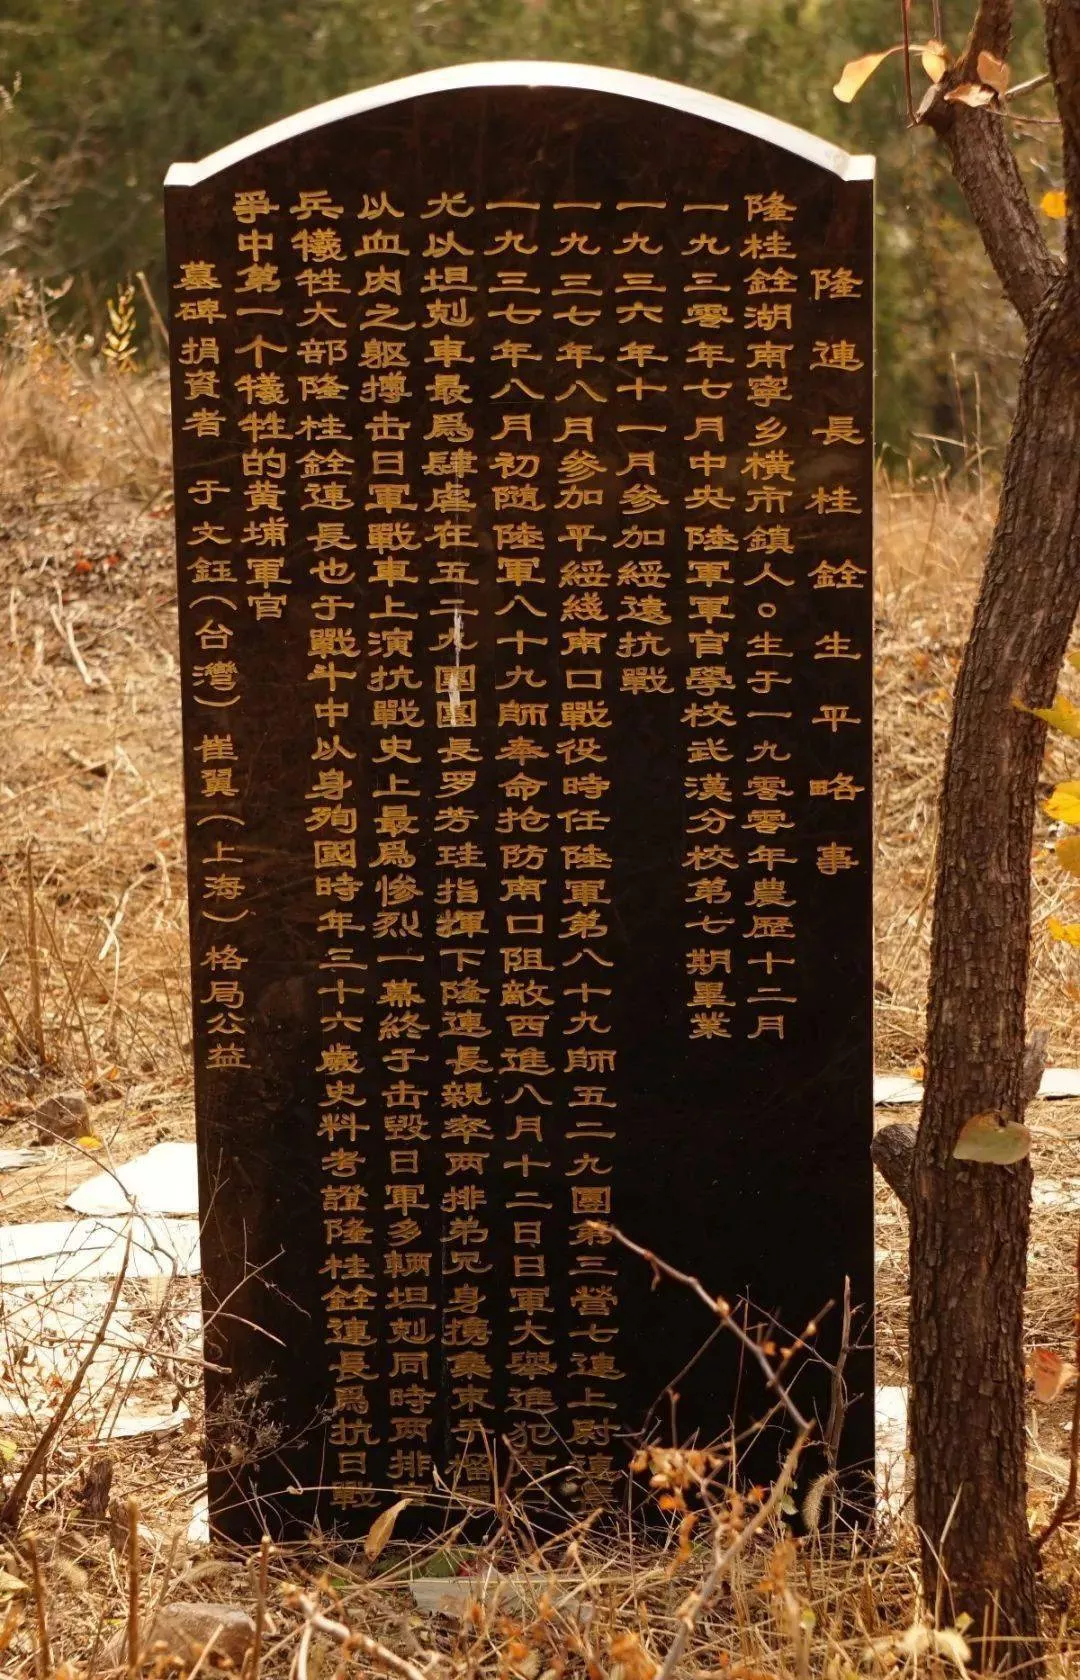 隆連長桂銓生平略事
隆桂銓湖南寧乡橫市鎮人。生于一九零零年農歷十二月
一九三零年七月中央陸軍軍官學校武漢分校第七期畢業
一九三六年十一月參加綏遠抗戰
一九三七年八月參加平綏綫南口戰役時任陸軍第八十九師五二九團第三營七連上尉連
一九三七年八月初隨陸軍八十九師奉命抢防南口阻敵西進八月十二日日軍大舉進犯
尤以坦剋車最爲肆虐在五二九團團長罗芳珪指揮下隆連長親率两排弟兄身携集束手榴
以血肉之躯摶击日軍戰車上演抗戰史上最爲惨烈一幕終于击毀日軍多輛坦剋同時两排
兵犧牲大部隆桂銓連長也于戰斗中以身殉國時年三十六歲史料考證隆桂銓連長爲抗日戰
爭中第一个犧牲的黄埔軍官
墓碑捐資者 于文鈺（台灣）崔翼（上海）格局公益